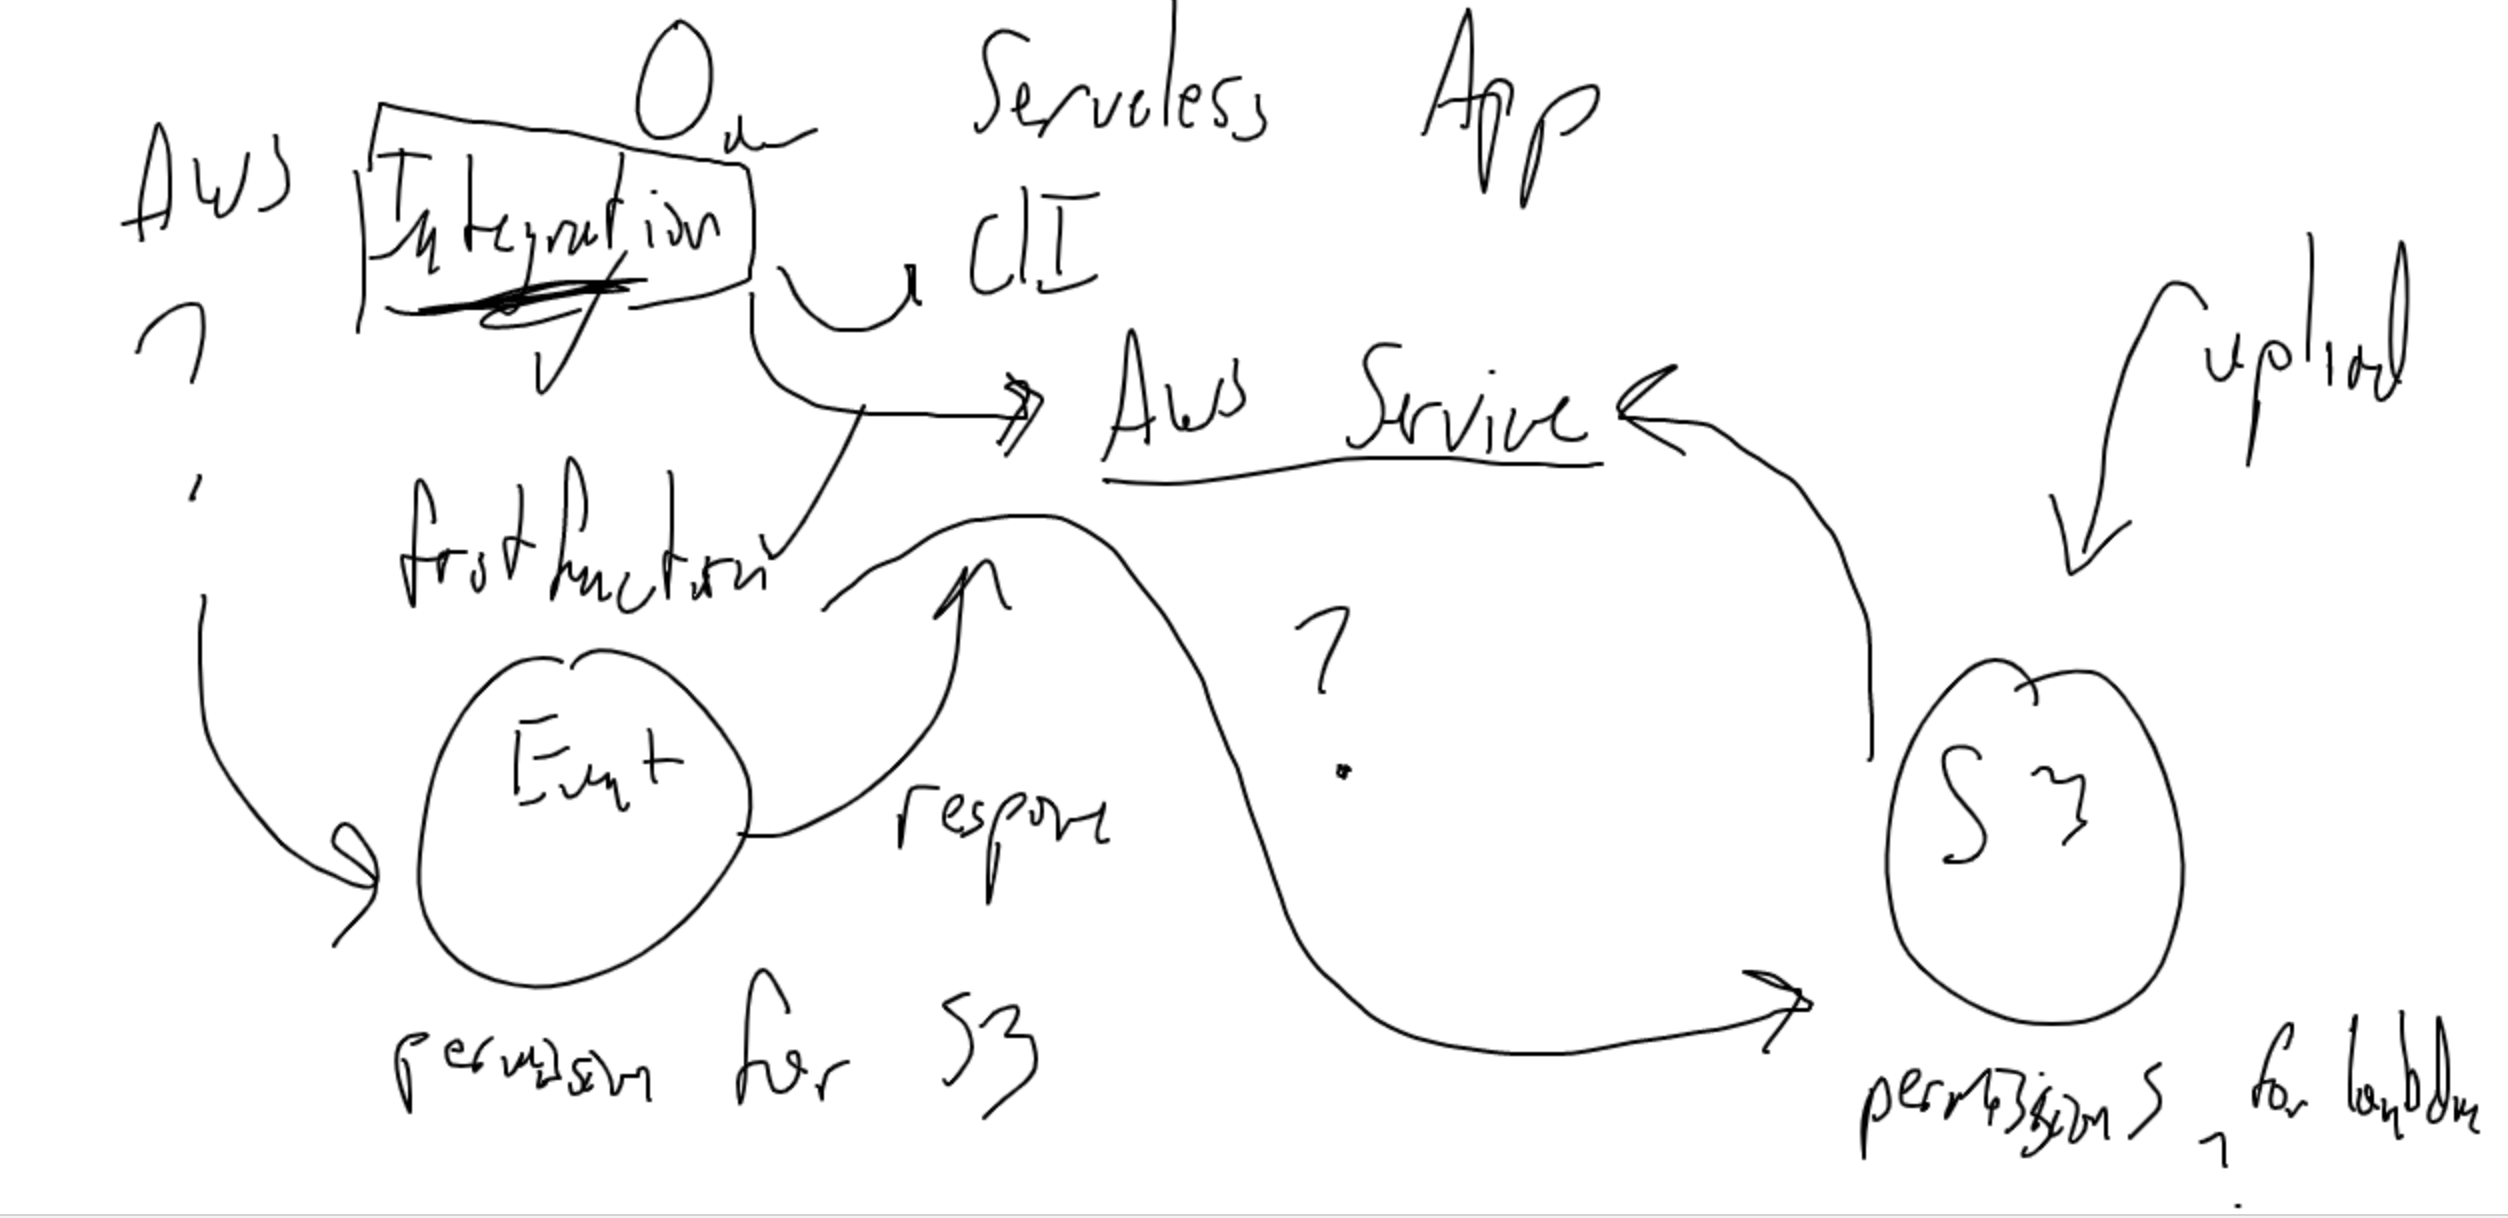 Our Serveless App
Aws Integration
ClI
?
upload
Aws Service
first function
?
Event
respone
S3
permission for S3
permissions for lambda
?